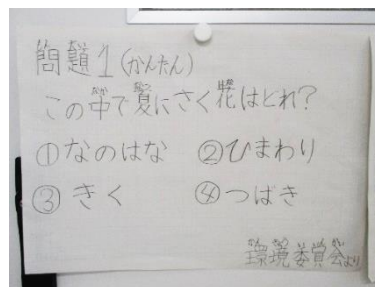 問題1(かんたん)
この中で夏にさく花はどれ?
①なのはな ②ひまわり
③きく ④つばき
環境委員会より